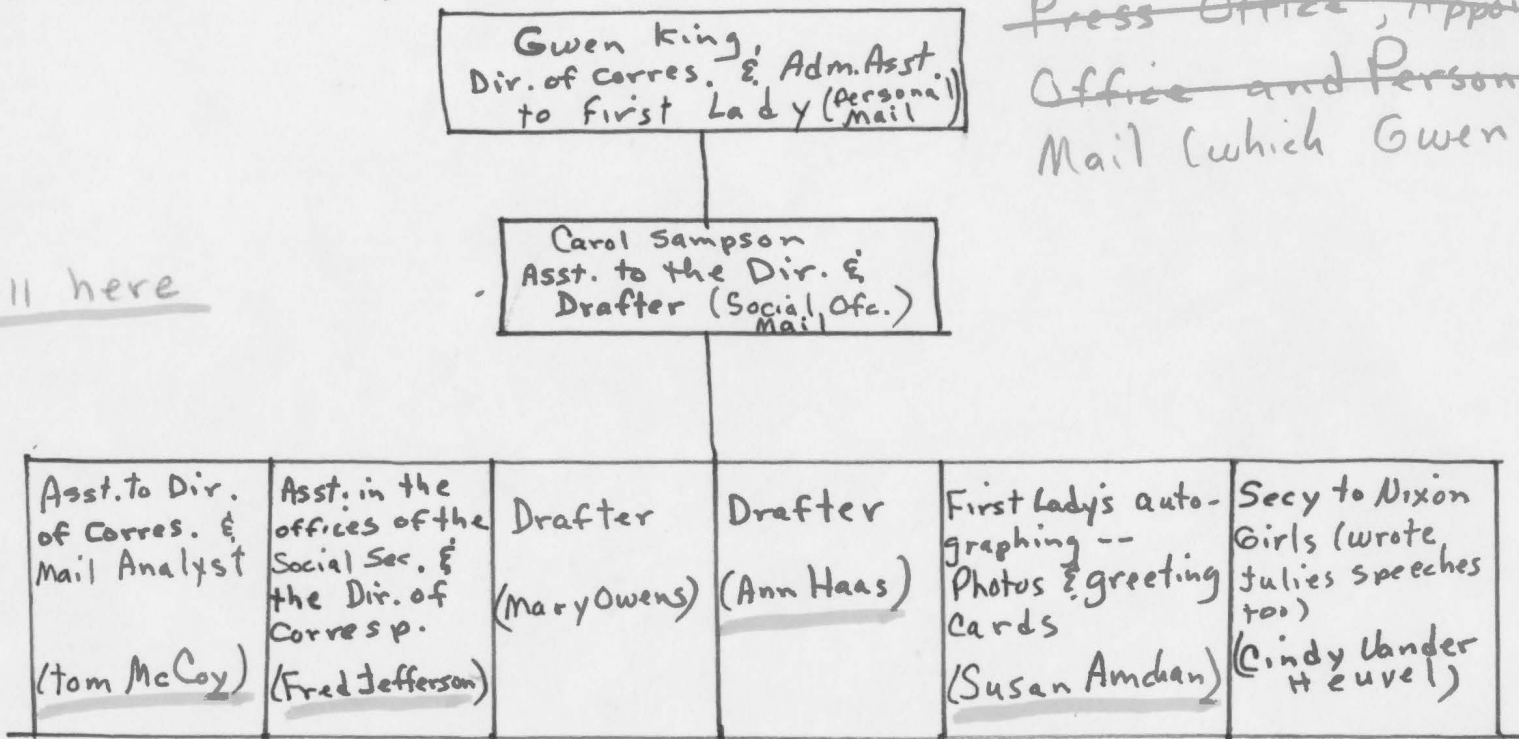 Gwen King,
Dir. of Corres. & Adm. Asst.
to First Lady (Personal
Mail)
Press Office,
Office and
Mail (which Gwen
Carol Sampson
Asst. to the Dir. &
Drafter (Social Ofc.)
Mail
here
Asst. to Dir.
of Corres. &
Mail Analyst
(Tom McCoy)
Asst. in the
offices of the
Social Sec. &
the Dir. of
Corresp.
(Fred Jefferson)
Drafter
(Mary Owens)
Drafter
(Ann Haas)
First Lady's auto-
graphing --
Photos & greeting
Cards
(Susan Amchan)
Secy to Nixon
Girls (wrote
Julies speeches
too)
(Cindy Vander
Heuvel)